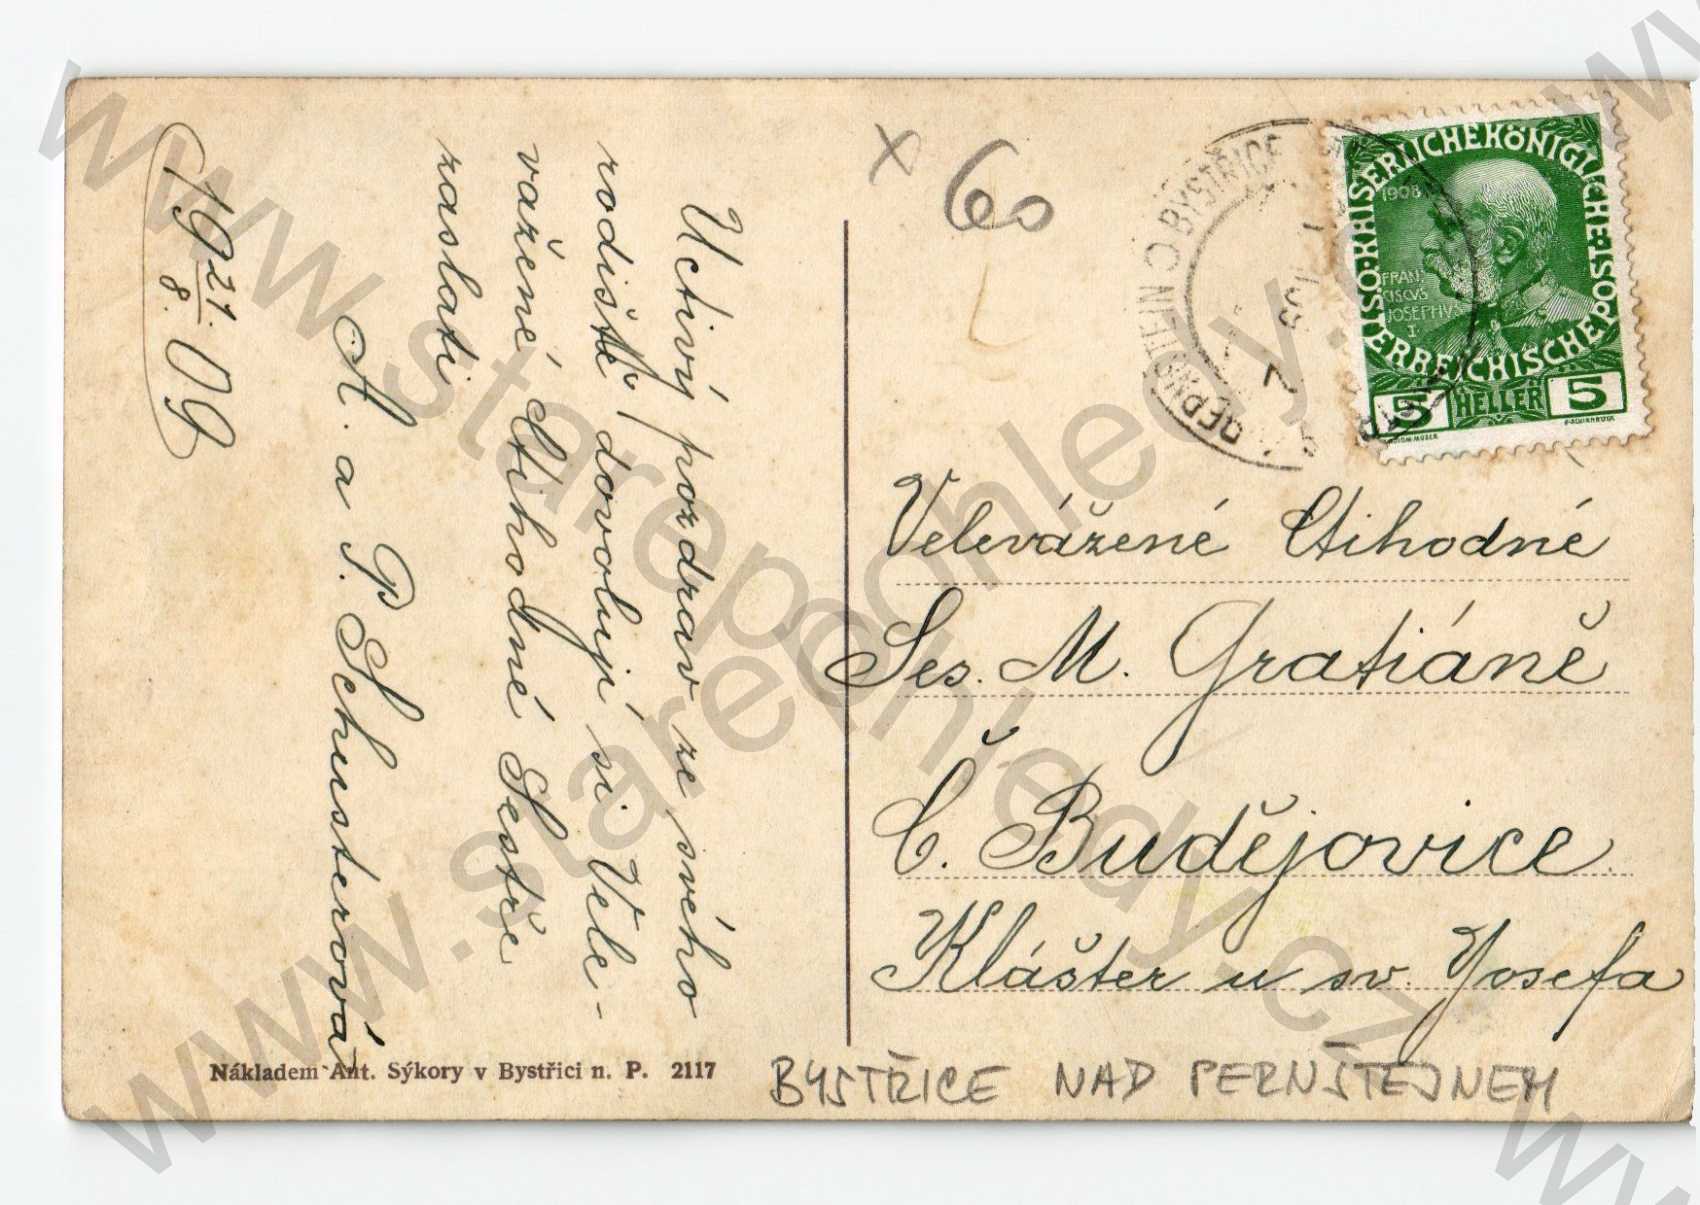 Uctivý pozdrav ze svého
rodiště dovolují si Vele-
vážené ctihodné Sestře
zaslati
A. a P. Schusterová
19 21. 09
8.
Nákladem Ant. Sýkory v Bystřici n. P. 2117
× 60
KAISERLICHE KÖNIGLICHE
ÖSTERREICHISCHE POST
1908
FRAN
CISCUS
JOSEPHUS
I
5 HELLER 5
BYSTŘICE
Velevážené Ctihodné
Ses. M. Gratiáně
Č. Budějovice.
Klášter u sv. Josefa
BYSTŘICE NAD PERNŠTEJNEM
www.starepohledy.cz
www.starepohledy.cz